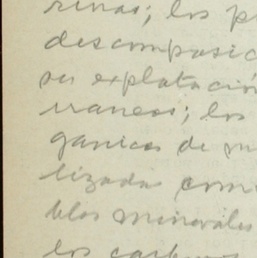 rinas; los p
descomposic
su explotación
rraneos; los
ganicos de m
lizadas com
blos minerales
los carbon